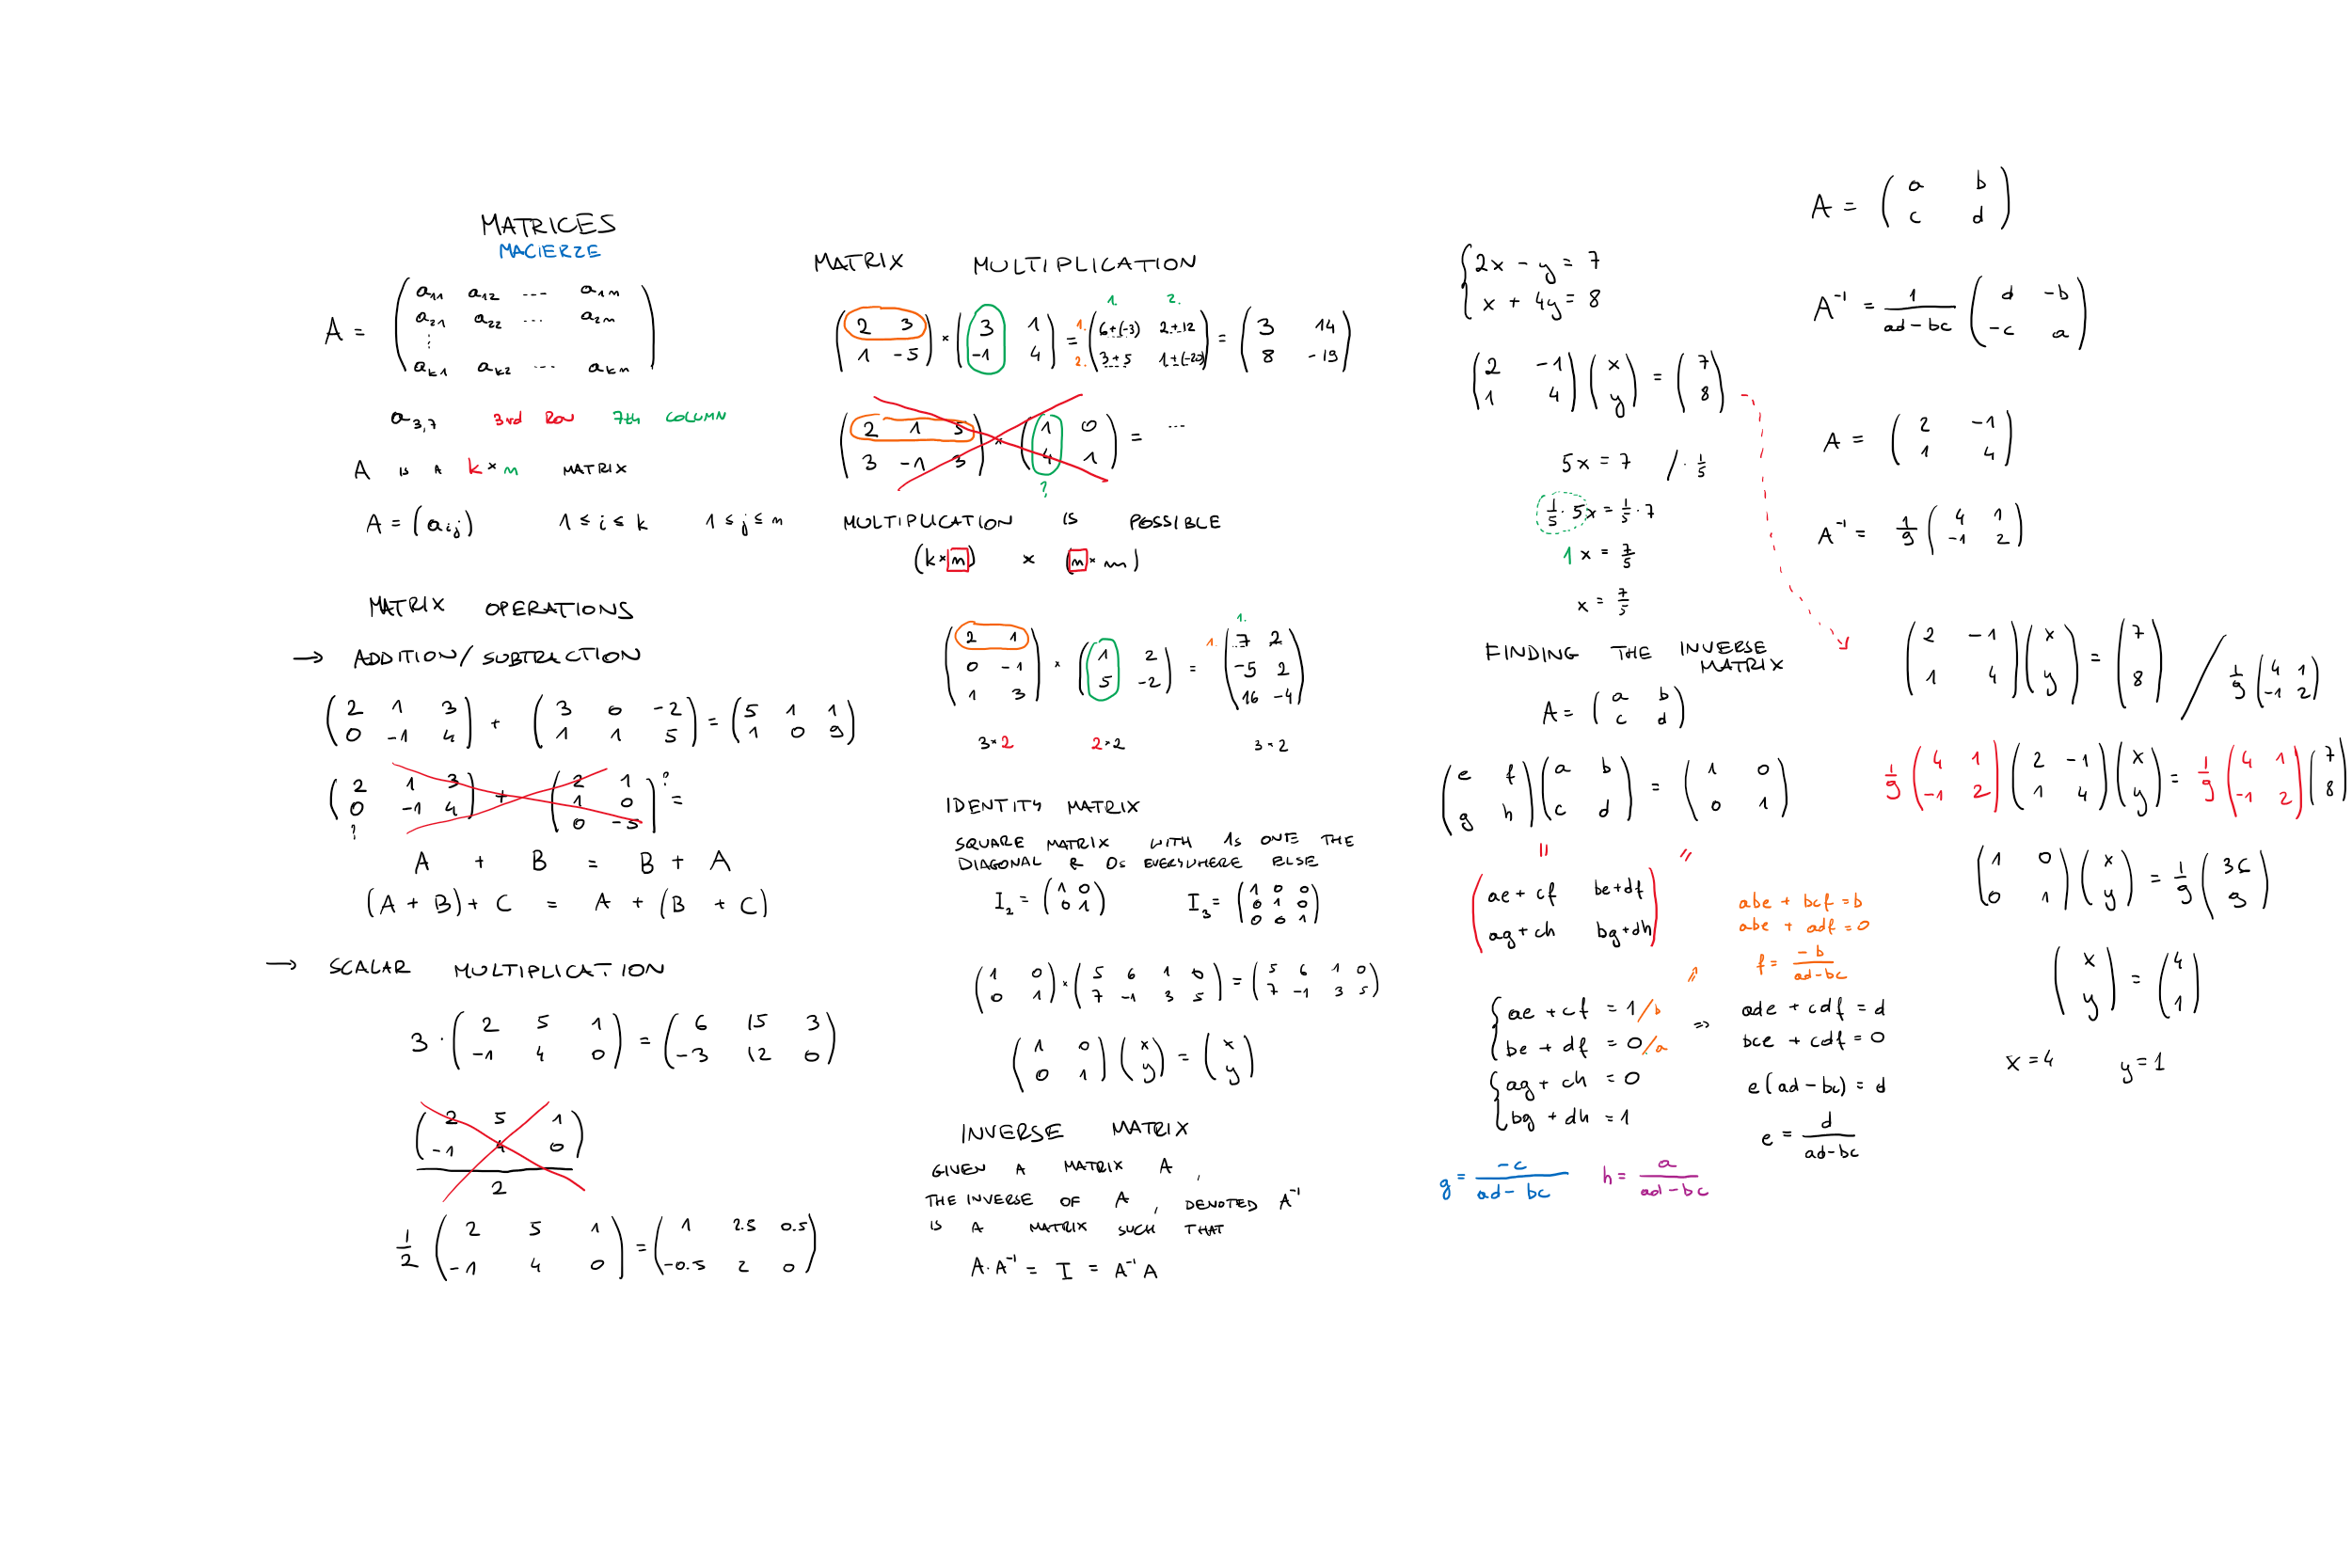 MATRICES
MACIERZE
A = ( a11 a12 --- a1m
a21 a22 ... a2m
⋮
ak1 ak2 --- akm )
a3,7 3rd ROW 7th COLUMN
A IS A k×m MATRIX
A = (aij) 1 ≤ i ≤ k 1 ≤ j ≤ m
MATRIX OPERATIONS
→ ADDITION/SUBTRACTION
( 2 1 3 ) + ( 3 0 -2 ) = ( 5 1 1 )
( 0 -1 4 ) ( 1 1 5 ) ( 1 0 9 )
( 2 1 3 ) + ( 2 1 ) ? =
( 0 -1 4 ) ( 1 0 )
? ( 0 -5 )
A + B = B + A
(A + B) + C = A + (B + C)
→ SCALAR MULTIPLICATION
3 · ( 2 5 1 ) = ( 6 15 3 )
( -1 4 0 ) ( -3 12 0 )
( 2 5 1 )
( -1 4 0 )
2
1/2 ( 2 5 1 ) = ( 1 2.5 0.5 )
( -1 4 0 ) ( -0.5 2 0 )
MATRIX MULTIPLICATION
1. 2.
( 2 3 ) × ( 3 1 ) = 1. ( 6+(-3) 2+12 ) = ( 3 14 )
( 1 -5 ) ( -1 4 ) 2. ( 3+5 1+(-20) ) ( 8 -19 )
( 2 1 5 ) × ( 1 0 ) = ...
( 3 -1 3 ) ( 4 1 )
?
MULTIPLICATION IS POSSIBLE
(k×m) × (m×n)
1.
( 2 1 ) × ( 1 2 ) = 1. ( 7 2 )
( 0 -1 ) ( 5 -2 ) ( -5 2 )
( 1 3 ) ( 16 -4 )
3×2 2×2 3×2
IDENTITY MATRIX
SQUARE MATRIX WITH 1s ONE THE
DIAGONAL & 0s EVERYWHERE ELSE
I2 = ( 1 0 ) I3 = ( 1 0 0 )
( 0 1 ) ( 0 1 0 )
( 0 0 1 )
( 1 0 ) × ( 5 6 1 0 ) = ( 5 6 1 0 )
( 0 1 ) ( 7 -1 3 5 ) ( 7 -1 3 5 )
( 1 0 ) ( x ) = ( x )
( 0 1 ) ( y ) ( y )
INVERSE MATRIX
GIVEN A MATRIX A,
THE INVERSE OF A, DENOTED A⁻¹
IS A MATRIX SUCH THAT
A·A⁻¹ = I = A⁻¹A
{ 2x - y = 7
x + 4y = 8
( 2 -1 ) ( x ) = ( 7 )
( 1 4 ) ( y ) ( 8 )
5x = 7 / · 1/5
1/5 · 5x = 1/5 · 7
1 x = 7/5
x = 7/5
FINDING THE INVERSE
MATRIX
A = ( a b )
( c d )
( e f ) ( a b ) = ( 1 0 )
( g h ) ( c d ) ( 0 1 )
= =
( ae + cf be + df )
( ag + ch bg + dh )
abe + bcf = b
abe + adf = 0
f = -b / ad-bc
{ ae + cf = 1 /b ⇒ ade + cdf = d
be + df = 0 /.a bce + cdf = 0
{ ag + ch = 0 e(ad - bc) = d
bg + dh = 1 e = d / ad-bc
g = -c / ad - bc h = a / ad - bc
A = ( a b )
( c d )
A⁻¹ = 1 / ad - bc ( d -b )
( -c a )
A = ( 2 -1 )
( 1 4 )
A⁻¹ = 1/9 ( 4 1 )
( -1 2 )
( 2 -1 ) ( x ) = ( 7 ) / 1/9 ( 4 1 )
( 1 4 ) ( y ) ( 8 ) ( -1 2 )
1/9 ( 4 1 ) ( 2 -1 ) ( x ) = 1/9 ( 4 1 ) ( 7 )
( -1 2 ) ( 1 4 ) ( y ) ( -1 2 ) ( 8 )
( 1 0 ) ( x ) = 1/9 ( 36 )
( 0 1 ) ( y ) ( 9 )
( x ) = ( 4 )
( y ) ( 1 )
x = 4 y = 1